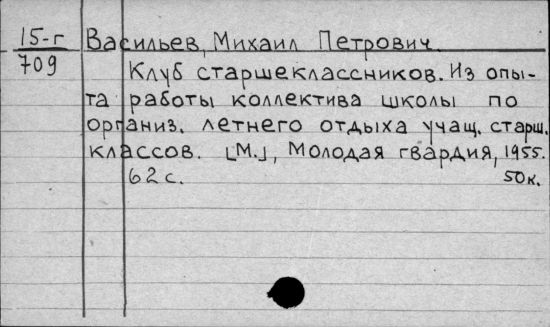 15-г Васильев, Михаил Петрович.
709 Клуб старшеклассников. Из опы-
та работы коллектива школы по
организ. летнего отдыха учащ. старш.
классов. [М.], Молодая гвардия, 1955.
62 с. 50 к.